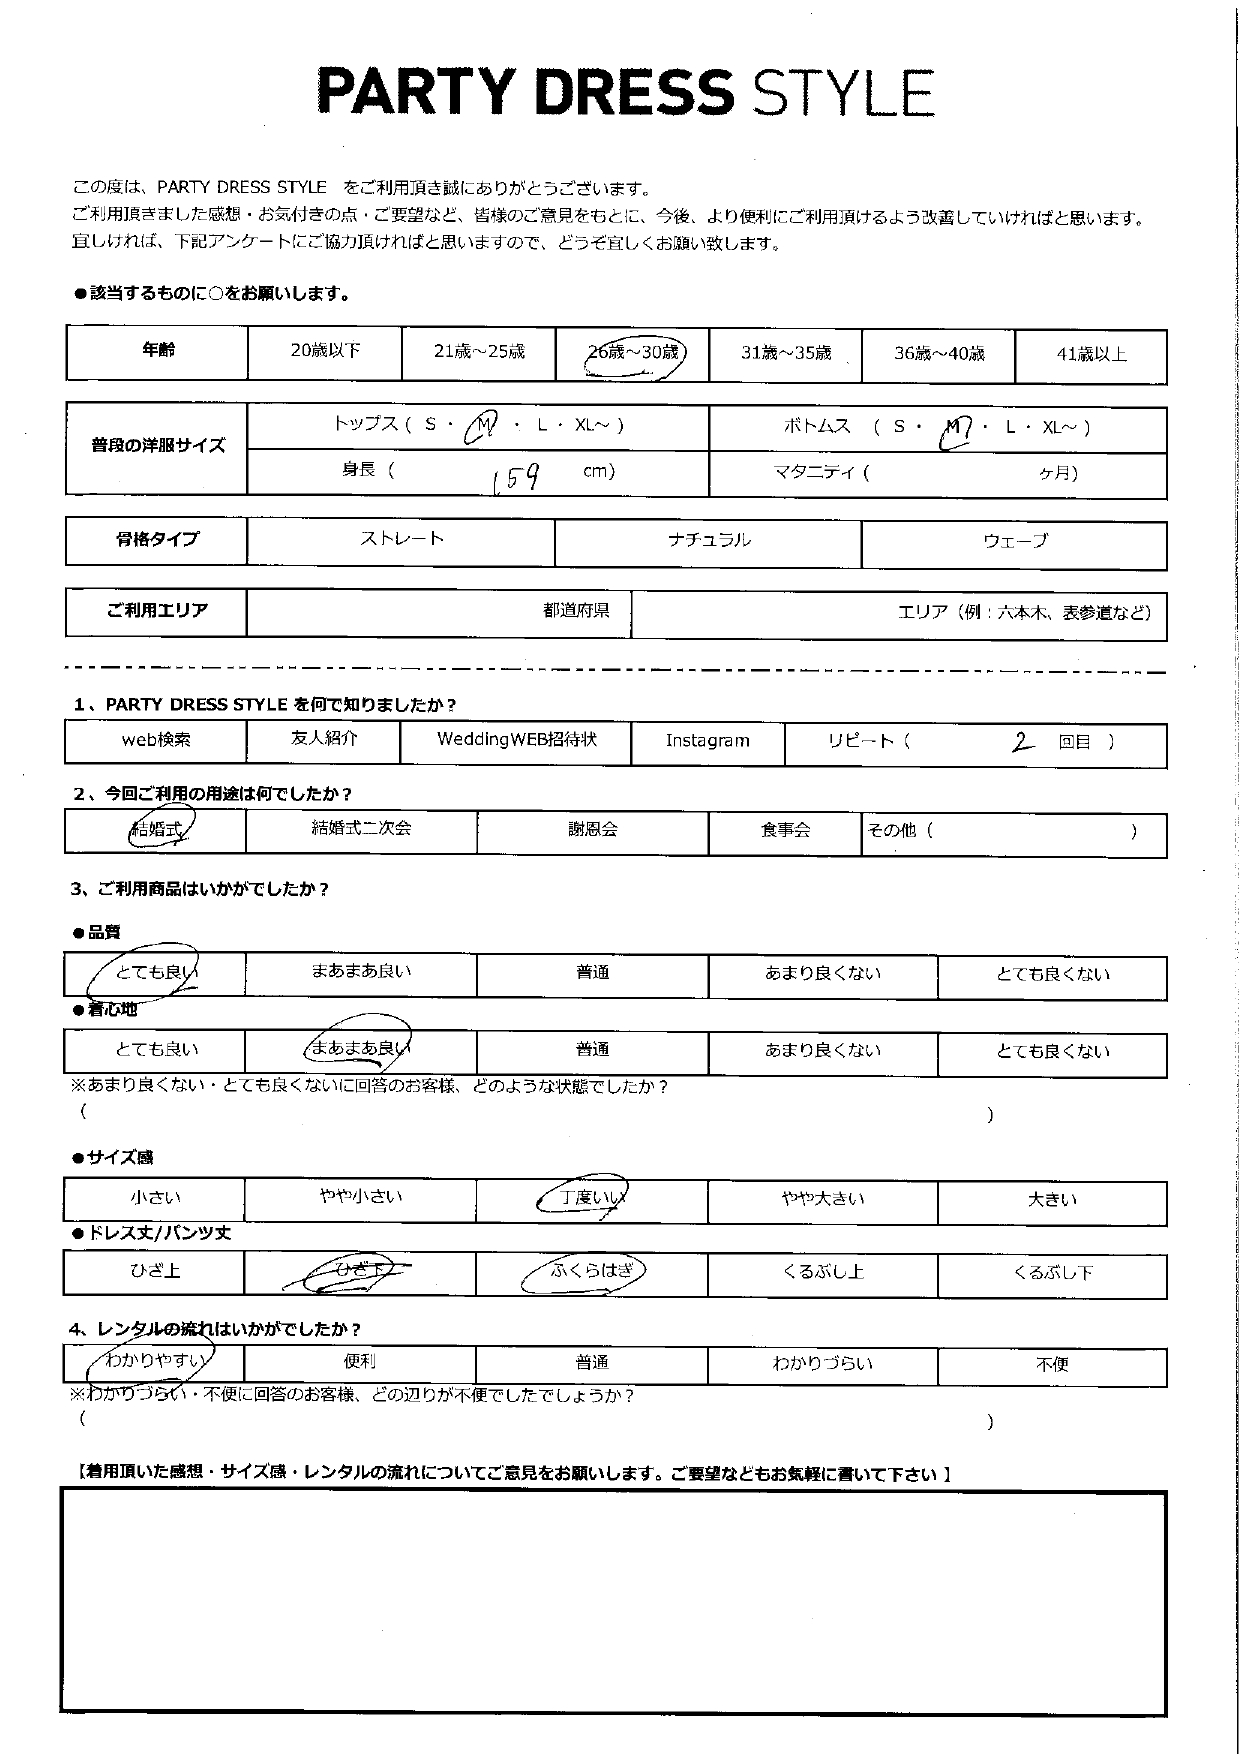 PARTY DRESS STYLE
この度は、PARTY DRESS STYLE　をご利用頂き誠にありがとうございます。
ご利用頂きました感想・お気付きの点・ご要望など、皆様のご意見をもとに、今後、より便利にご利用頂けるよう改善していければと思います。
宜しければ、下記アンケートにご協力頂ければと思いますので、どうぞ宜しくお願い致します。
●該当するものに○をお願いします。
年齢 20歳以下 21歳～25歳 26歳～30歳 31歳～35歳 36歳～40歳 41歳以上
普段の洋服サイズ トップス ( S ・ M ・ L ・ XL～ ) ボトムス ( S ・ M ・ L ・ XL～ )
身長 ( 159 cm) マタニティ ( ヶ月)
骨格タイプ ストレート ナチュラル ウェーブ
ご利用エリア 都道府県 エリア（例：六本木、表参道など）
1、PARTY DRESS STYLE を何で知りましたか？
web検索 友人紹介 WeddingWEB招待状 Instagram リピート ( 2 回目 )
2、今回ご利用の用途は何でしたか？
結婚式 結婚式二次会 謝恩会 食事会 その他 ( )
3、ご利用商品はいかがでしたか？
●品質
とても良い まあまあ良い 普通 あまり良くない とても良くない
●着心地
とても良い まあまあ良い 普通 あまり良くない とても良くない
※あまり良くない・とても良くないに回答のお客様、どのような状態でしたか？
( )
●サイズ感
小さい やや小さい 丁度いい やや大きい 大きい
●ドレス丈/パンツ丈
ひざ上 ひざ下 ふくらはぎ くるぶし上 くるぶし下
4、レンタルの流れはいかがでしたか？
わかりやすい 便利 普通 わかりづらい 不便
※わかりづらい・不便に回答のお客様、どの辺りが不便でしたでしょうか？
( )
【着用頂いた感想・サイズ感・レンタルの流れについてご意見をお願いします。ご要望などもお気軽に書いて下さい 】